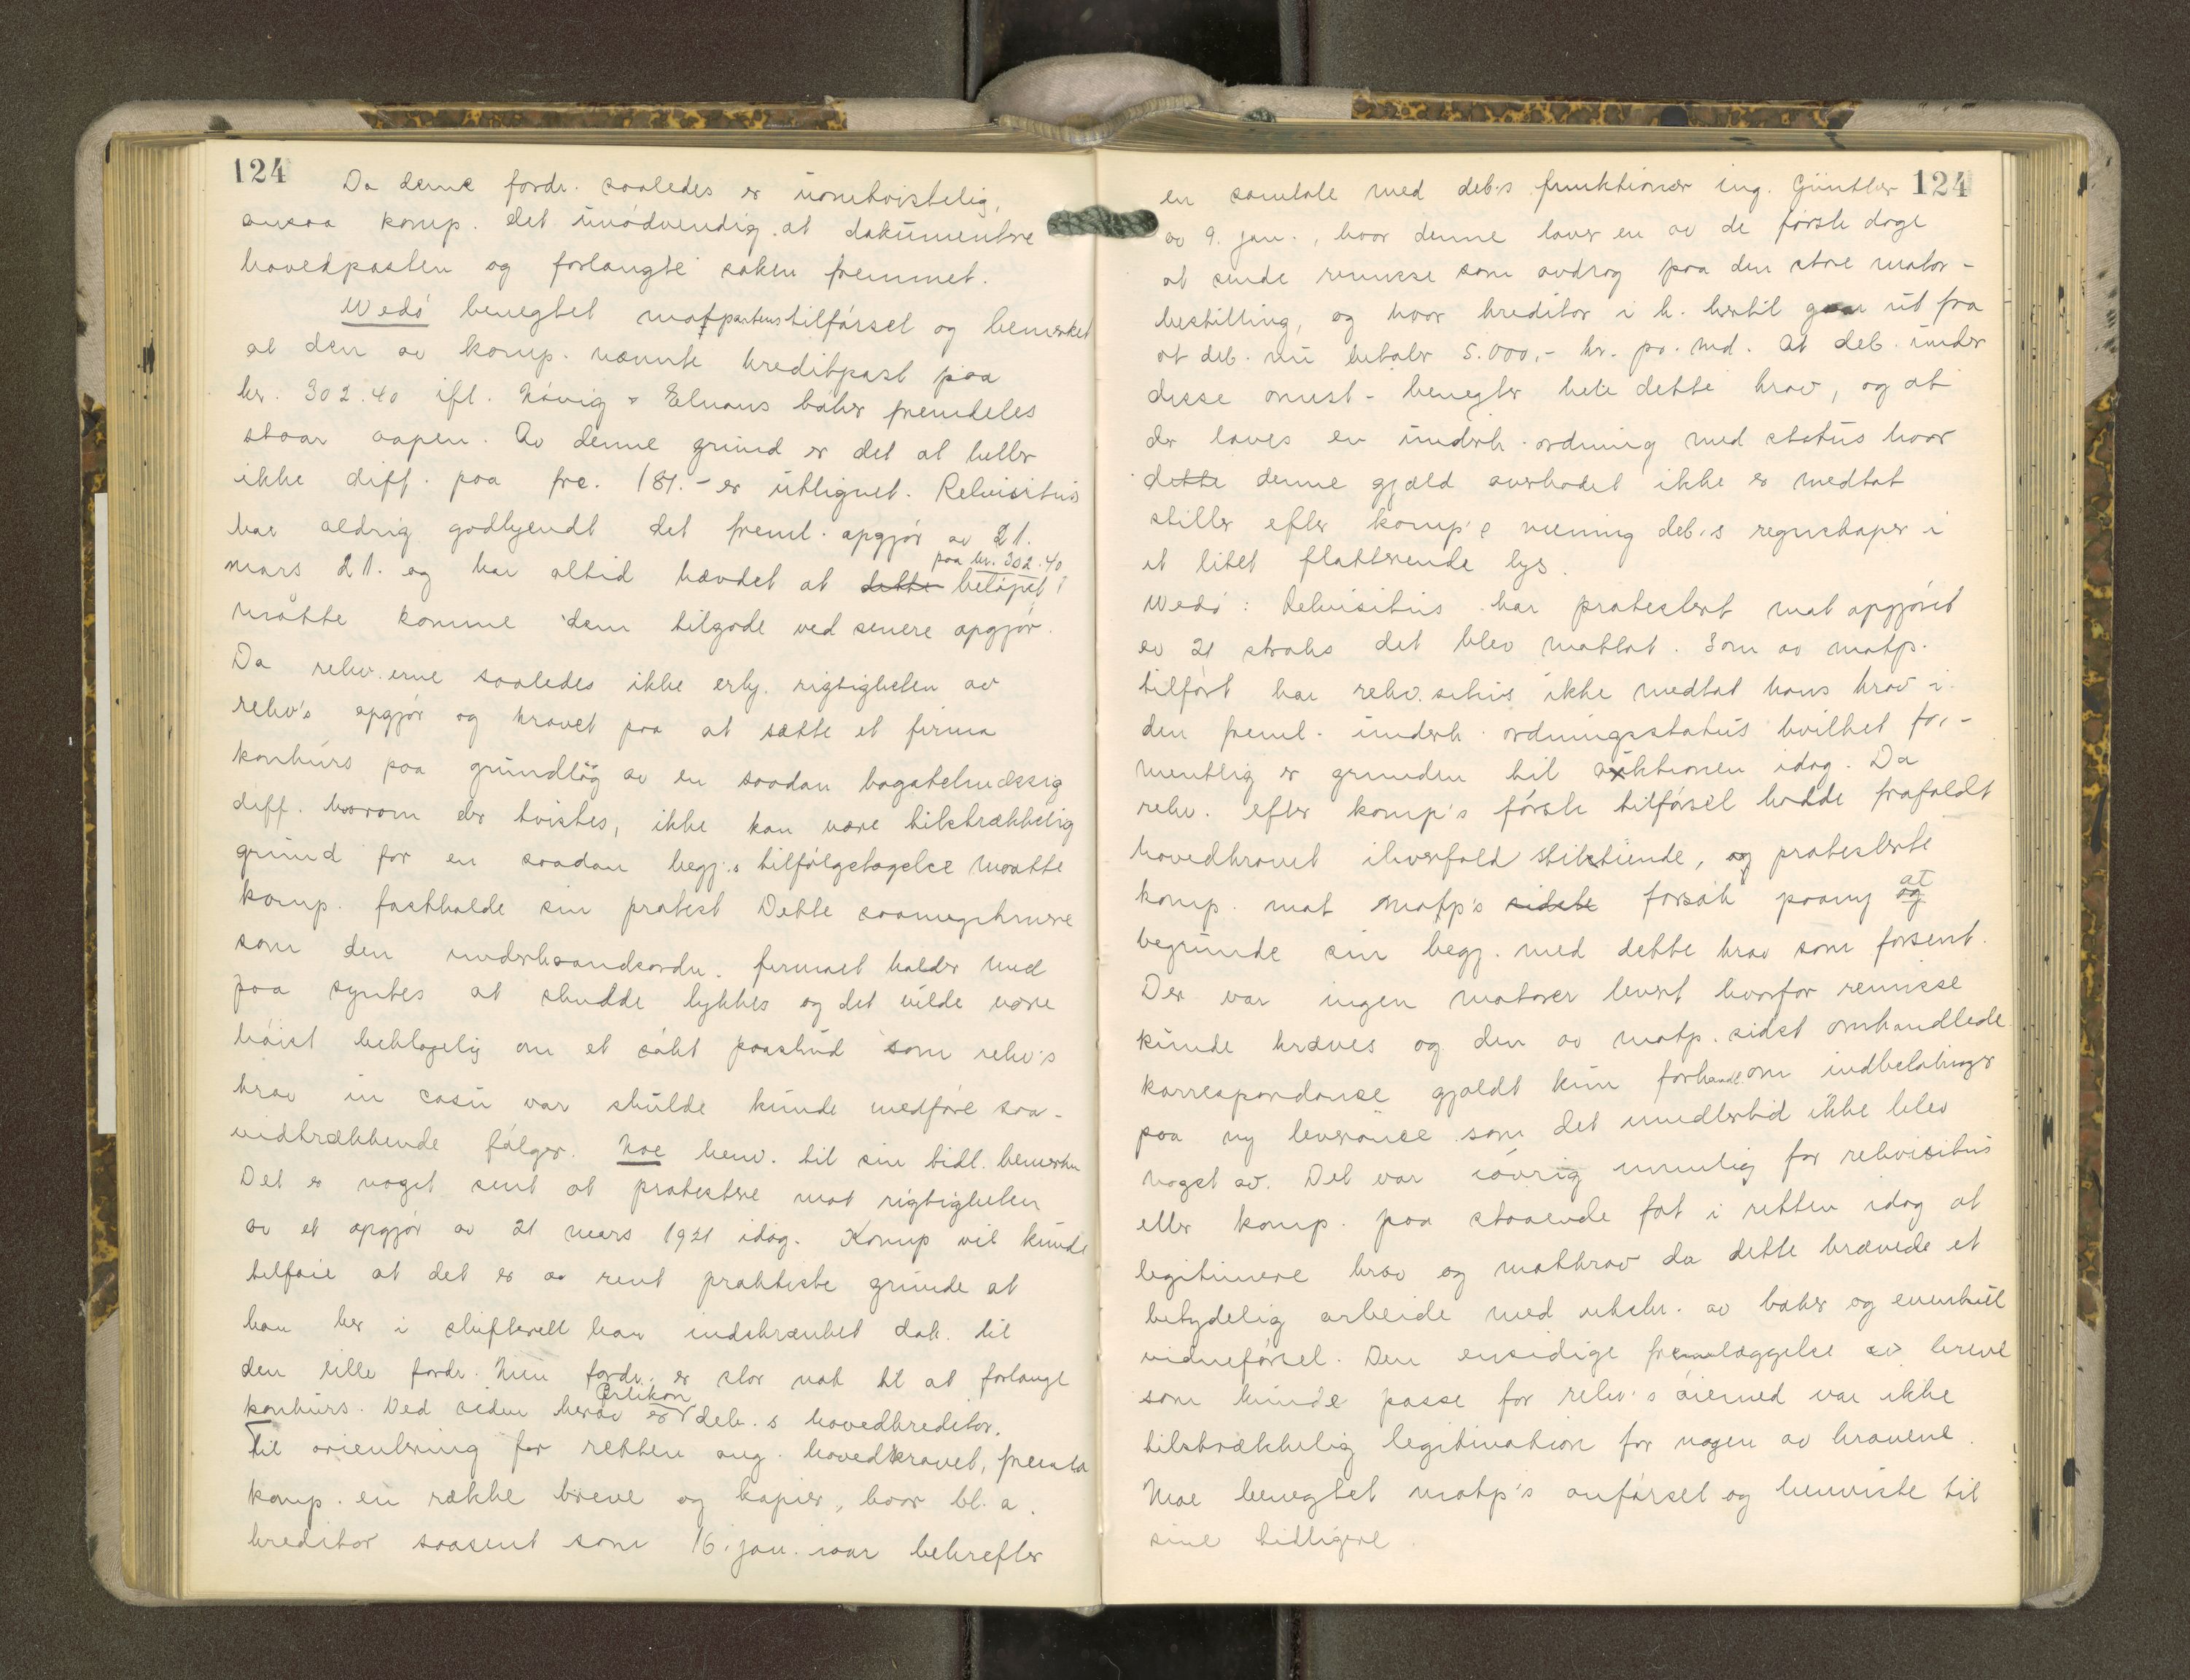 124
Da denne fordr. saaledes er uomtvistelig,
ansaa komp. det unødvendig at dokumentere
hovedposten og forlangte saken fremmet.
Wedø benegtet motpartens tilførsel og bemerket
at den av komp. nævnte kreditpost paa
kr. 302.40 ifl. Høvig & Elnans bøker fremdeles
staar aapen. Av denne grund er det at heller
ikke diff. paa frc. 181.- er utlignet. Rekvisitus
har aldrig godkjendt det freml. opgjør av 21.
mars 21. og har altid hævdet at dette beløpet paa kr. 302.40
måtte komme dem tilgode ved senere opgjør.
Da rekv.erne saaledes ikke erkj. rigtigheten av
rekv's opgjør og kravet paa at sætte et firma
konkurs paa grundlag av en saadan bagatelmæssig
diff. hvorom der tvistes, ikke kan være tilstrækkelig
grund for en saadan begj.s tilfølgetagelse maatte
komp. fastholde sin protest Dette saameget mere
som den underhaandsordn. firmaet holder med
paa syntes at skulde lykkes og det vilde være
høist beklagelig om et søkt paaskud som rekv's
krav in casu var skulde kunde medføre saa-
vidtrækkende følger. Moe henv. til sin tidl. bemerkn
Det er noget sent at protestere mot rigtigheten
av et opgjør av 21 mars 1921 idag. Komp vil kunde
tilføie at det er av rent praktiske grunde at
han her i skifterett har indskrænket dok. til
den lille fordr. Min fordr. er stor nok til at forlange
konkurs. Ved siden herav er Oerlikon deb.s hovedkreditor.
Til orientering for retten ang. hovedkravet, fremla
komp. en række breve og kopier, hvor bl.a.
kreditor saasent som 16. jan. iaar bekrefter
124
en samtale med deb.s funktionær ing. Günther
av 9. jan., hvor denne lover en av de første dage
at sende remisse som avdrag paa den store motor-
bestilling, og hvor kreditor i h. hertil gaar ut fra
at deb. nu betaler 5.000,- kr. pr. md. At deb. under
disse omst- benegter hele dette krav, og at
der laves en underh. ordning med status hvor
dette denne gjæld overhodet ikke er medtat
stiller efter komp's mening deb.s regnskaper i
et litet flatterende lys.
Wedø: Rekvisitus har protestert mot opgjøret
av 21 straks det blev mottat. Som av motp.
tilført har rekv.situs ikke medtat hans krav i
den freml. underh. ordningsstatus hvilket for-
mentlig er grunden til auktionen idag. Da
rekv. efter komp's første tilførsel hadde frafaldt
hovedkravet ihverfald stiltiende, og protesterte
komp. mot motp's sidste forsøk paany og at
begrunde sin begj. med dette krav som forsent.
Der var ingen motorer levert hvorfor remisse
kunde kræves og den av motp. sidst omhandlede
korrespondanse gjaldt kun forhandl. om indbetalinger
paa ny leveranse som det imidlertid ikke blev
noget av. Det var iøvrig umulig for rekvisitus
eller komp. paa staaende fot i retten idag at
legitimere krav og motkrav da dette krævede et
betydelig arbeide med utskr. av bøker og eventuel
vidneførsel. Den ensidige fremlæggelse av breve
som kunde passe for rekv's øiemed var ikke
tilstrækkelig legitimation for nogen av kravene.
Moe benegtet motp's anførsel og henviste til
sine tidligere.